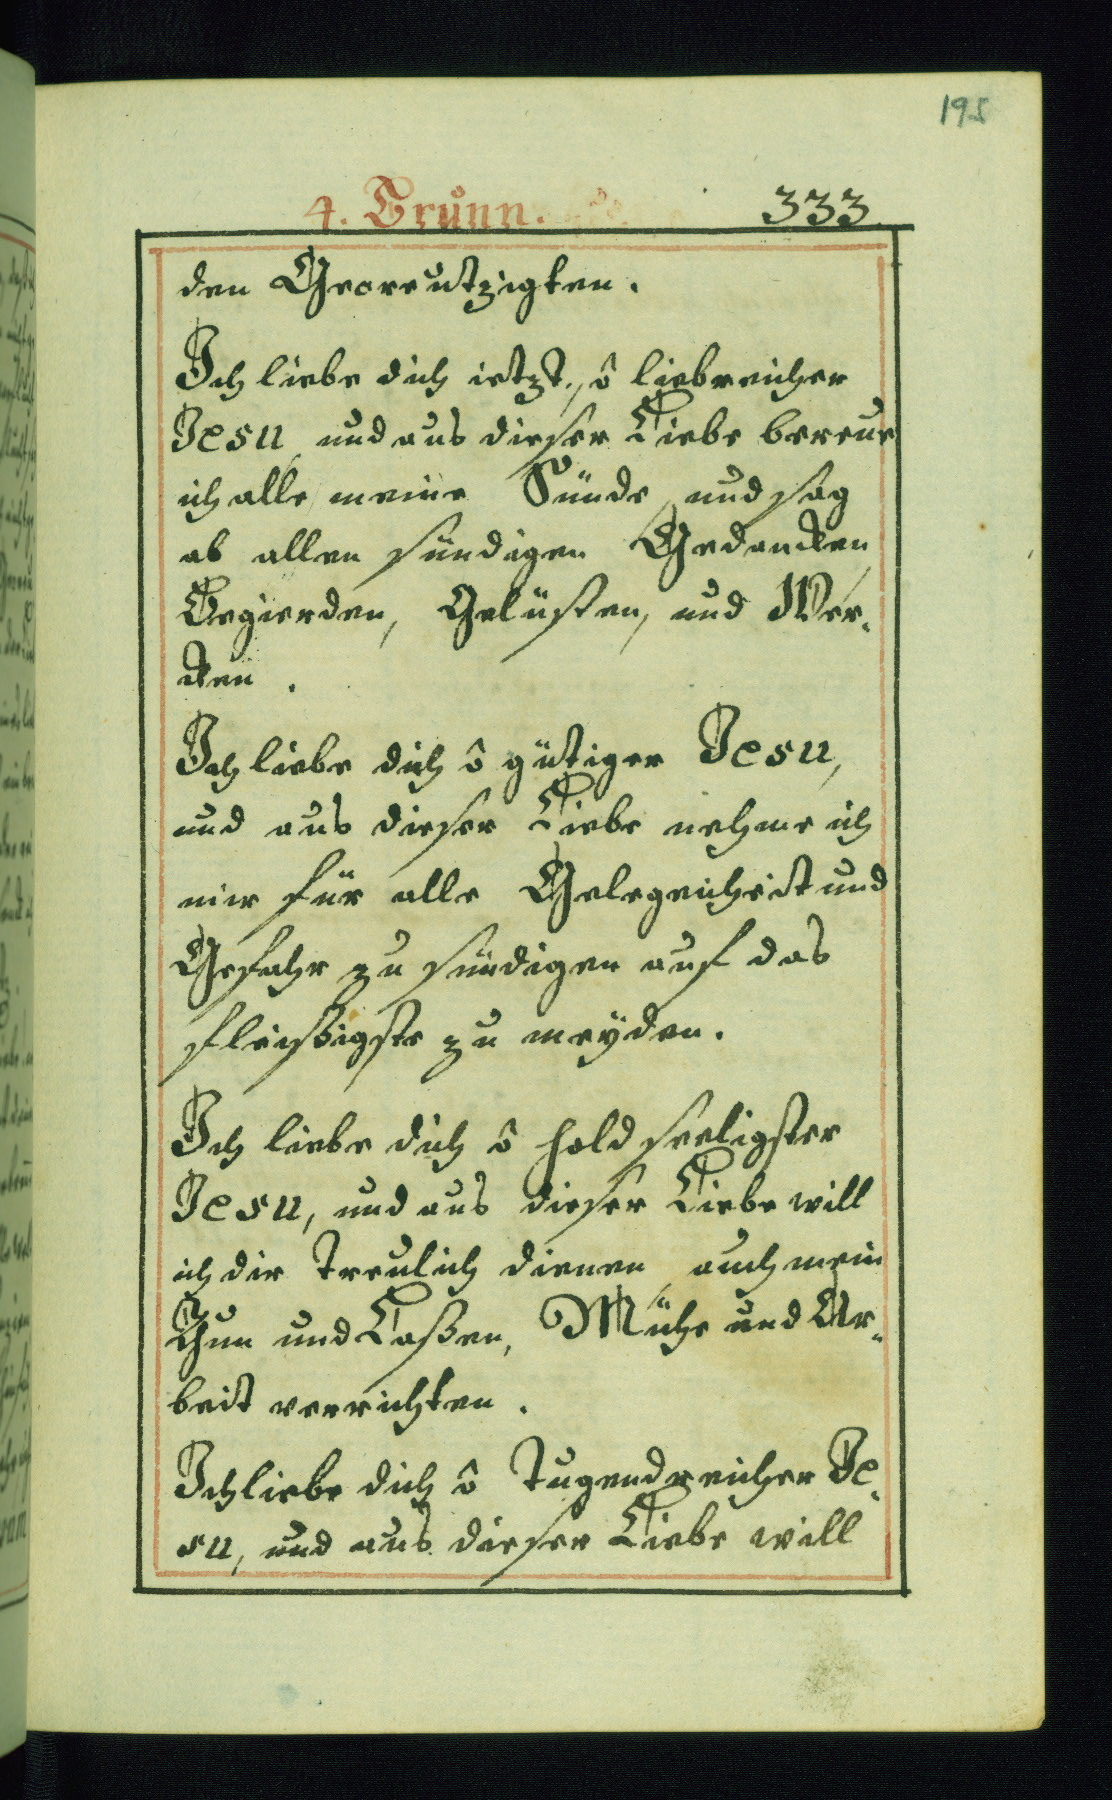 195
4. Brunn. 333
den Gecreutzigten.
Ich liebe dich ietzt, ô liebreicher
Jesu und aus dieser Liebe bereue
ich alle meine Sünde, und sag
ab allen sündigen Gedancken
Begierden, Gelüsten, und Wer-
cken.
Ich liebe dich ô gütiger Jesu,
und aus dieser Liebe nehme ich
mir für alle Gelegenheit und
Gefahr zu sündigen auf das
fleißigste zu meÿden.
Ich liebe dich ô holdseeligster
Jesu, und aus dieser Liebe will
ich dir treulich dienen, auch mein
Thun und Laßen, Mühe und Ar-
beit verrichten.
Ich liebe dich ô Tugendreicher Je-
su, und aus dieser Liebe will